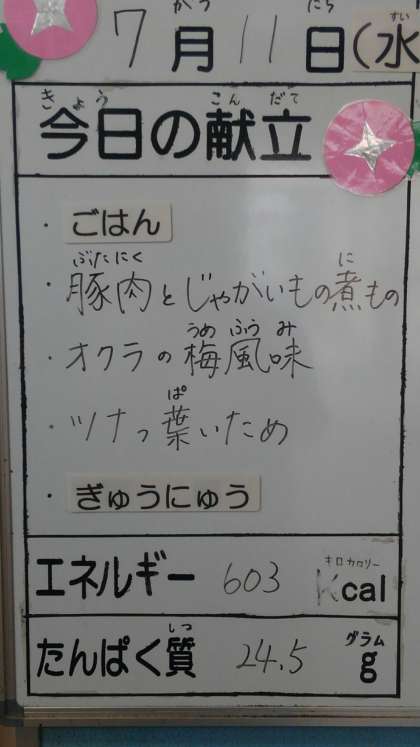 7月11日(水
今日の献立
・ごはん
・豚肉とじゃがいもの煮もの
・オクラの梅風味
・ツナっ葉いため
・ぎゅうにゅう
エネルギー 603 Kcal
たんぱく質 24.5 g